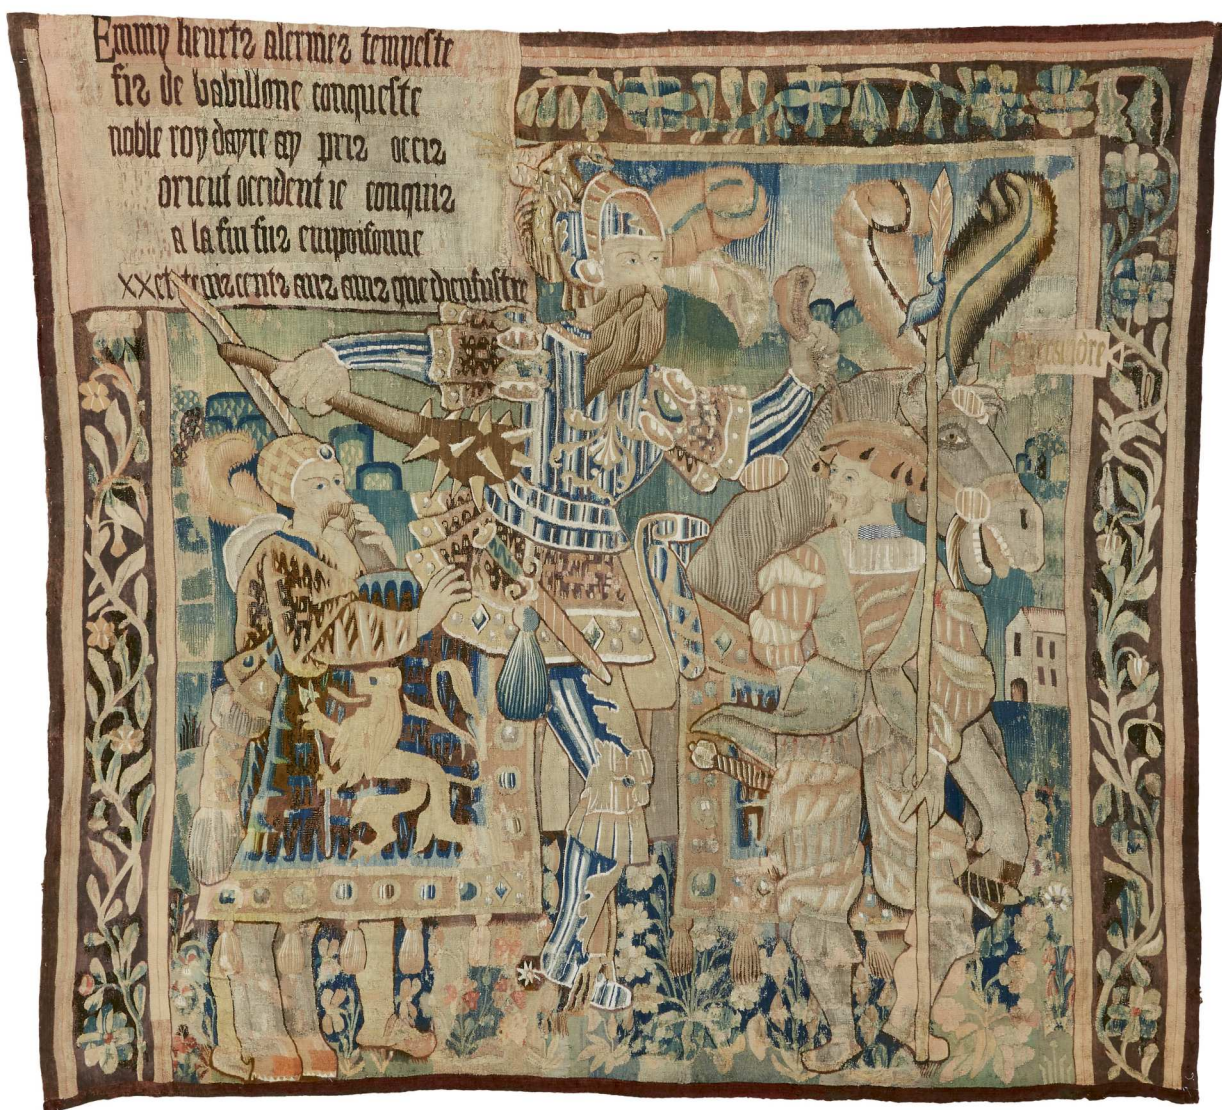 Emmy heurtz alermes tempeste
fiz de babillone conqueste
noble roy dayre ay priz occiz
orient occident ie conquiz
a la fin fuz empoisonne
xx et troiz cents anz auez que dieu fust ne